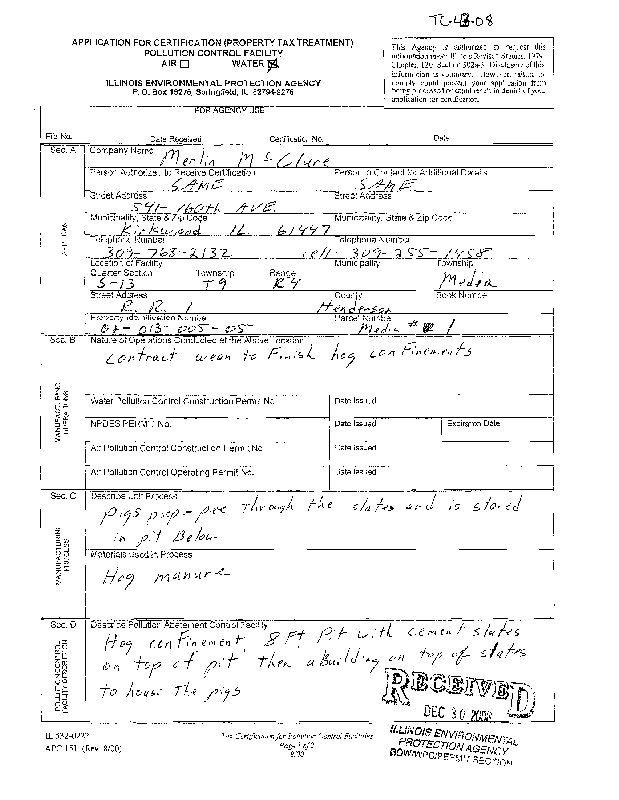 TC-43-08
APPLICATION FOR CERTIFICATION (PROPERTY TAX TREATMENT)
POLLUTION CONTROL FACILITY
AIR WATER
ILLINOIS ENVIRONMENTAL PROTECTION AGENCY
P. O. Box 19276, Springfield, IL 62794-9276
This Agency is authorized to request this
information under Illinois Revised Statutes, 1979,
Chapter 120, Section 502a-5. Disclosure of this
information is voluntary. However, failure to
comply could prevent your application from
being processed or could result in denial of your
application for certification.
FOR AGENCY USE
File No. Date Received Certification No. Date
Sec. A Company Name
Merlin McClure
Person Authorized to Receive Certification Person to Contact for Additional Details
SAME SAME
Street Address Street Address
541-160th AVE.
Municipality, State & Zip Code Municipality, State & Zip Code
Kirkwood IL 61447
Telephone Number Telephone Number
309-768-2132 cell-309-255-1458
Location of Facility Municipality Township
Quarter Section Township Range
S-13 T9 R4 Media
Street Address County Book Number
R.R. 1 Henderson
Property Identification Number Parcel Number
013-005-05 Media # 1
Sec. B Nature of Operations Conducted at the Above Location
contract wean to Finish hog confinements
MANUFACTURING
OPERATIONS
Water Pollution Control Construction Permit No. Date Issued
NPDES PERMIT No. Date Issued Expiration Date
Air Pollution Control Construction Permit No. Date Issued
Air Pollution Control Operating Permit No. Date Issued
Sec. C Describe Unit Process
pigs poop-pee Through the slates and is stored
in pit Below
MANUFACTURING
PROCESS
Materials Used in Process
Hog manure
Sec. D Describe Pollution Abatement Control Facility
Hog confinement, 8 Ft Pit with cement slates
on top of pit, then a Building on top of slates
to house The pigs
POLLUTION CONTROL
FACILITY DESCRIPTION
RECEIVED
DEC 30 2008
ILLINOIS ENVIRONMENTAL
PROTECTION AGENCY
BOW/WPC/PERMIT SECTION
IL 532-0222
APC 151 (Rev. 8/00)
Tax Certification for Pollution Control Facilities
Page 1 of 2